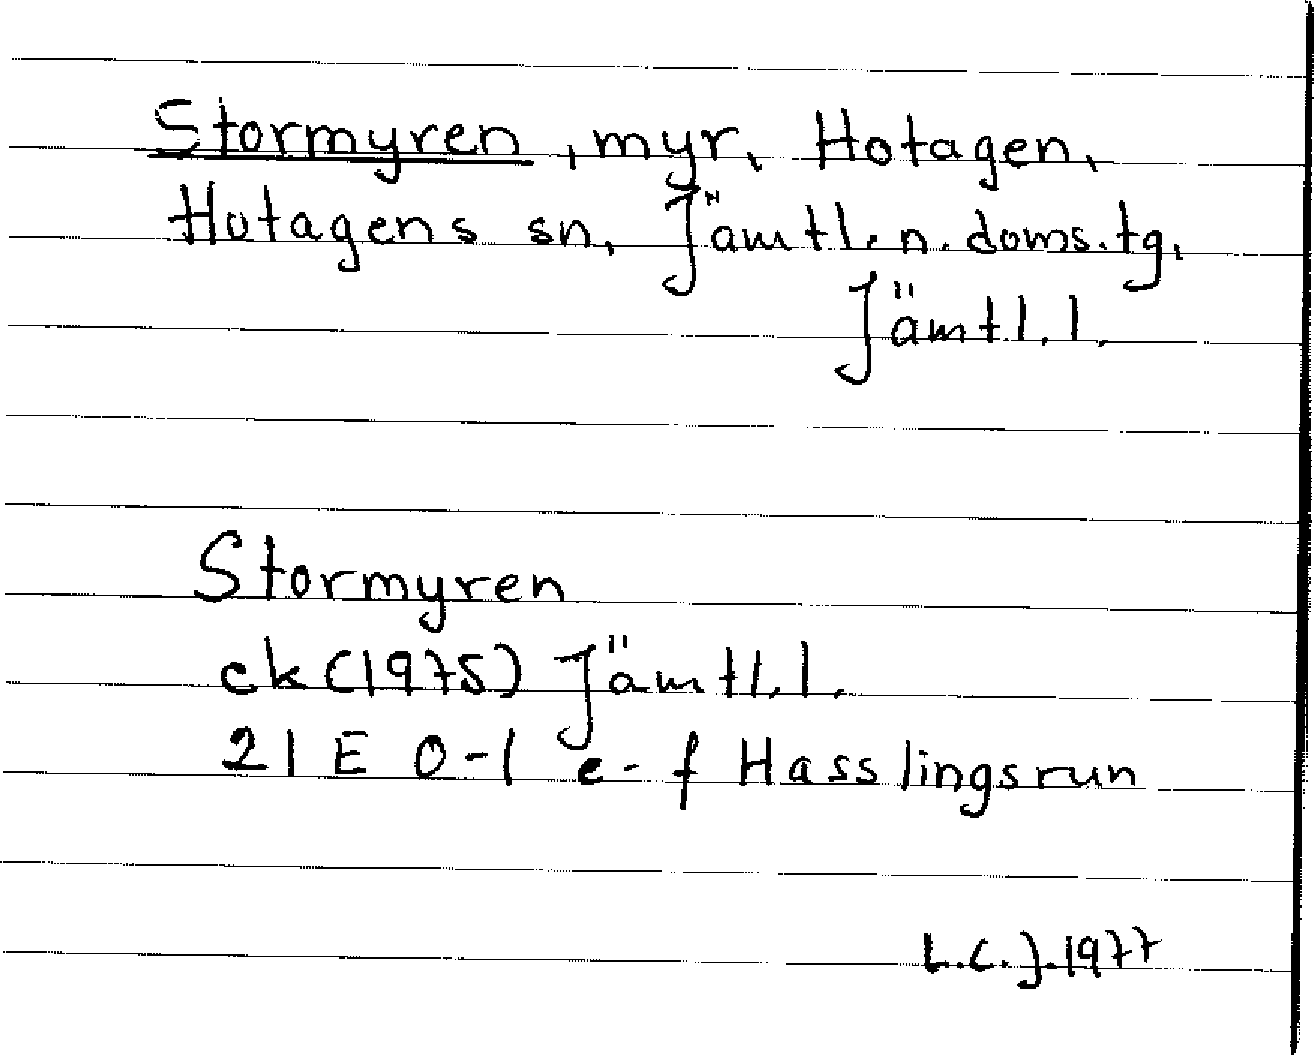 Stormyren, myr, Hotagen,
Hotagens sn, Jämtl. n. doms. tg,
Jämtl. l.
Stormyren
ek (1975) Jämtl. l.
21 E 0-1 e-f Hasslingsrun
L.C.J. 1977